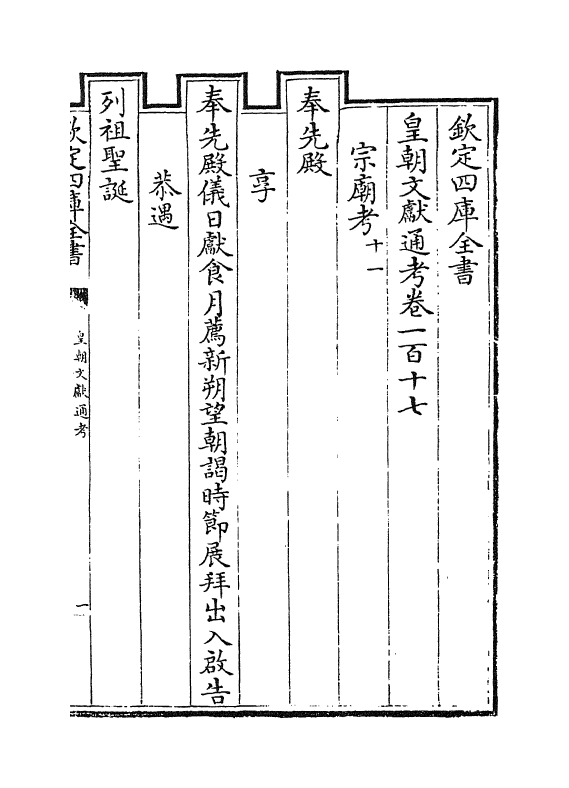 欽定四庫全書
皇朝文獻通考卷一百十七
宗廟考十一
奉先殿
享
奉先殿儀日獻食月薦新朔望朝謁時節展拜出入啟告
恭遇
列祖聖誕
欽定四庫全書
皇朝文獻通考
一